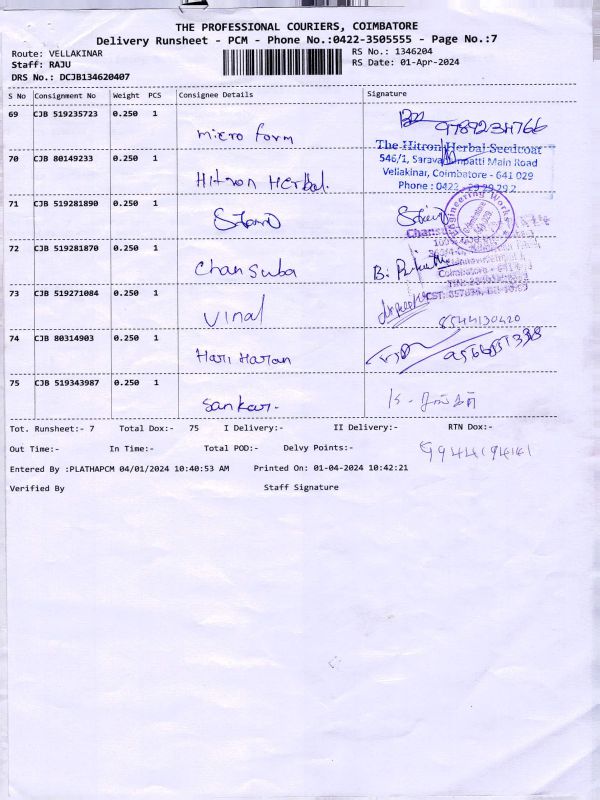 THE PROFESSIONAL COURIERS, COIMBATORE
Delivery Runsheet - PCM - Phone No.:0422-3505555 - Page No.:7
Route: VELLAKINAR
RS No.: 1346204
Staff: RAJU
RS Date: 01-Apr-2024
DRS No.: DCJB134620407
S No Consignment No Weight PCS Consignee Details Signature
69 CJB 519235723 0.250 1
micro form
70 CJB 80149233 0.250 1
The Hitron Herbal Seedcoat
546/1, Main Road
Vellakinar, Coimbatore - 641 029
Phone : 0422
Hitron Herbal.
71 CJB 519281890 0.250 1
Engineering Works
72 CJB 519281870 0.250 1
Chansuba
B.
Coimbatore
73 CJB 519271084 0.250 1
Vinal
8544130420
74 CJB 80314903 0.250 1
Hari Haran
75 CJB 519343987 0.250 1
Sankar.
Tot. Runsheet:- 7 Total Dox:- 75 I Delivery:- II Delivery:- RTN Dox:-
Out Time:- In Time:- Total POD:- Delvy Points:-
Entered By :PLATHAPCM 04/01/2024 10:40:53 AM Printed On: 01-04-2024 10:42:21
Verified By Staff Signature